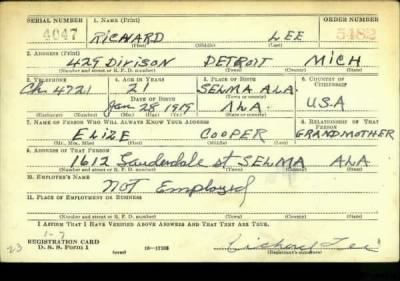 SERIAL NUMBER 1. NAME (Print) ORDER NUMBER
4047 RICHARD LEE 5482
(First) (Middle) (Last)
2. ADDRESS (Print)
429 DIVISON DETROIT MICH
(Number and street or R. F. D. number) (Town) (County) (State)
3. TELEPHONE 4. AGE IN YEARS 5. PLACE OF BIRTH 6. COUNTRY OF CITIZENSHIP
Ch 4721 21 SELMA ALA.
DATE OF BIRTH (Town or county)
Jan 28 1919 ALA. U.S.A
(Mo.) (Day) (Yr.) (State or country)
7. NAME OF PERSON WHO WILL ALWAYS KNOW YOUR ADDRESS 8. RELATIONSHIP OF THAT PERSON
ELIZE COOPER GRANDMOTHER
(Mr., Mrs., Miss) (First) (Middle) (Last)
9. ADDRESS OF THAT PERSON
1612 Lauderdale st SELMA ALA
(Number and street or R. F. D. number) (Town) (County) (State)
10. EMPLOYER'S NAME
not Employed
11. PLACE OF EMPLOYMENT OR BUSINESS
(Number and street or R. F. D. number) (Town) (County) (State)
I AFFIRM THAT I HAVE VERIFIED ABOVE ANSWERS AND THAT THEY ARE TRUE.
REGISTRATION CARD
D. S. S. Form 1 (over) Richard Lee
(Registrant's signature)